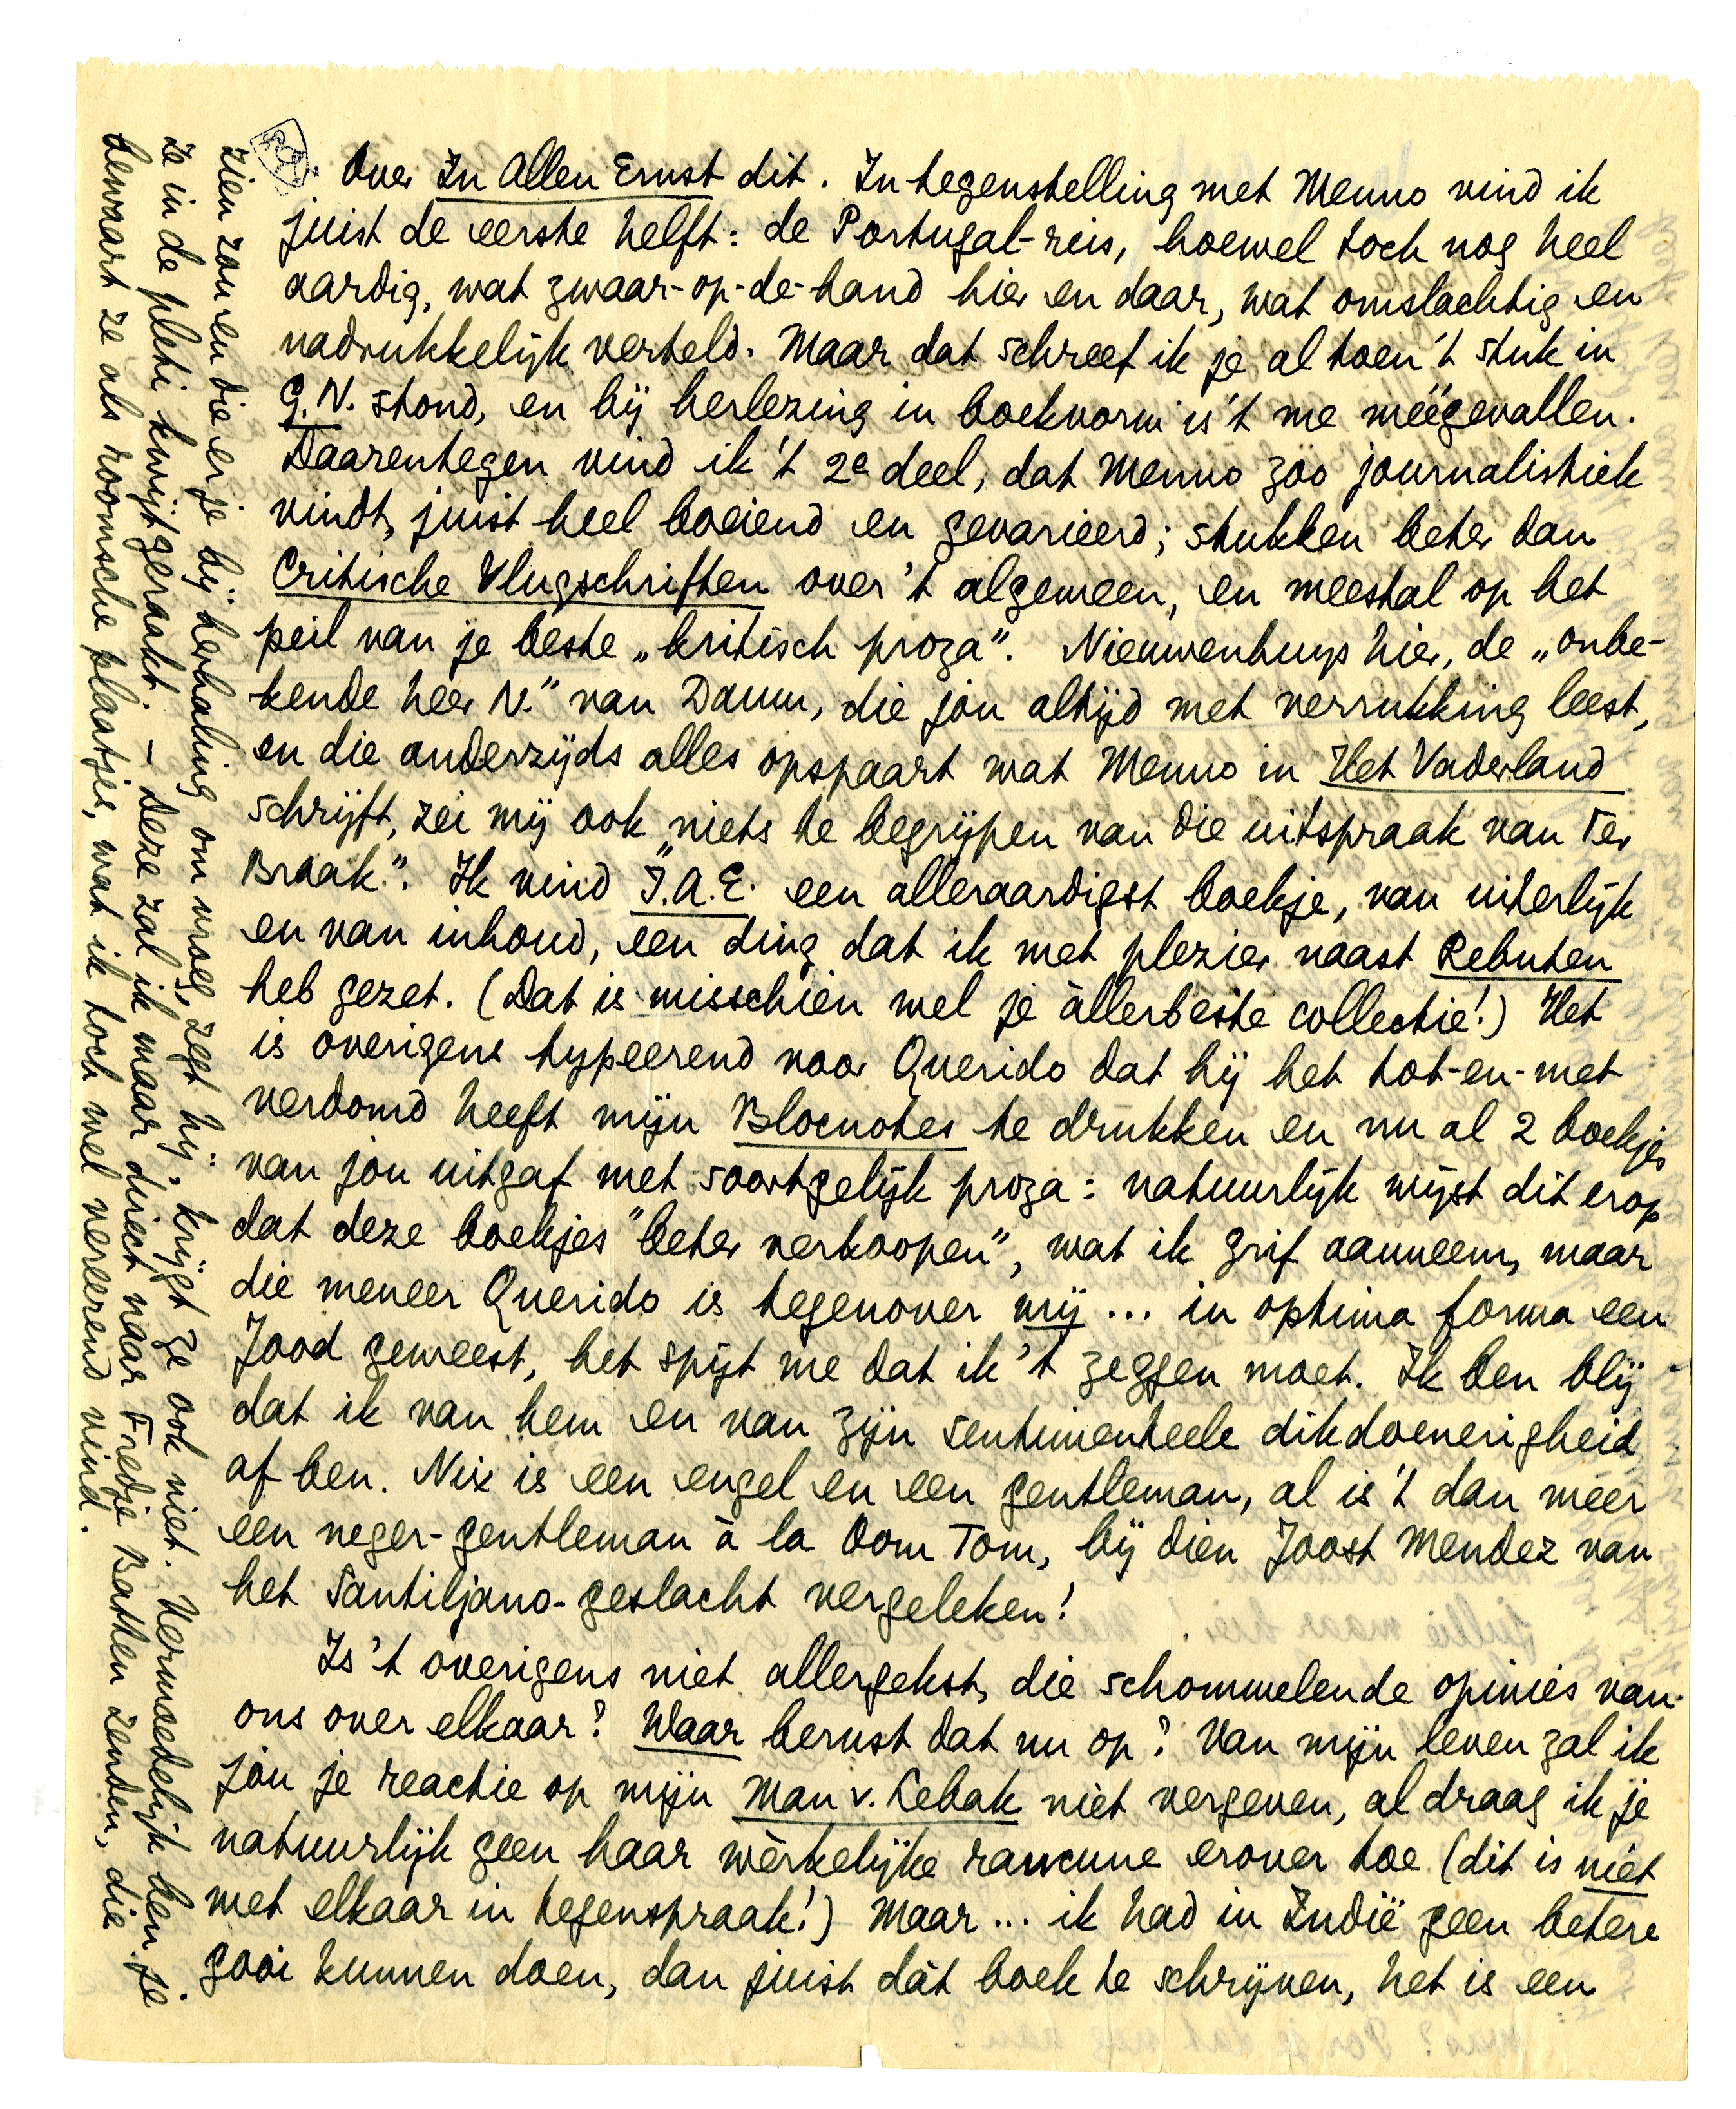 Over In Allen Ernst dit. In tegenstelling met Menno vind ik
juist de eerste helft: de Portugal-reis, hoewel toch nog heel
aardig, wat zwaar-op-de-hand hier en daar, wat omslachtig en
nadrukkelijk verteld. Maar dat schreef ik je al toen 't stuk in
G.N. stond, en bij herlezing in boekvorm is 't me méégevallen.
Daarentegen vind ik 't 2e deel, dat Menno zóo journalistiek
vindt, juist heel boeiend en gevarieerd; stukken beter dan
Critische Vlugschriften over 't algemeen, en meestal op het
peil van je beste „kritisch proza". Nieuwenhuys hier, de „onbe-
kende heer N." van Daum, die jou altijd met verrukking leest,
en die anderzijds alles opspaart wat Menno in Het Vaderland
schrijft, zei mij ook „niets te begrijpen van die uitspraak van Ter
Braak". Ik vind I.A.E. een alleraardigst boekje, van uiterlijk
en van inhoud, een ding dat ik met plezier naast Rebuten
heb gezet. (Dat is misschien wel je àllerbeste collectie!) Het
is overigens typeerend voor Querido dat hij het tot-en-met
verdomd heeft mijn Blocnotes te drukken en nu al 2 boekjes
van jou uitgaf met soortgelijk proza: natuurlijk wijst dit erop
dat deze boekjes "beter verkoopen", wat ik grif aanneem, maar
die meneer Querido is tegenover mij ... in optima forma een
Jood geweest, het spijt me dat ik 't zeggen moet. Ik ben blij
dat ik van hem en van zijn sentimenteele dikdoenerigheid
af ben. Nix is een engel en een gentleman, al is 't dan méér
een neger-gentleman à la Oom Tom, bij dien Joost Mendez van
het Santiljano-geslacht vergeleken!
Is 't overigens niet allergekst, die schommelende opinies van
ons over elkaar? Waar berust dat nu op? Van mijn leven zal ik
jou je reactie op mijn Man v. Lebak niet vergeven, al draag ik je
natuurlijk geen haar wèrkelijke rancune erover toe (dit is niet
met elkaar in tegenspraak!) Maar ... ik had in Indië geen betere
gooi kunnen doen, dan juist dàt boek te schrijven, het is een
zien zou en die er je bij herhaling om vroeg, zegt hij, krijgt ze ook niet. Vermoedelijk ben je
ze in de pleti kwijtgeraakt. – Deze zal ik maar direct naar Fredje Batten zenden, die
bewaart ze als roomsche plaatjes, wat ik toch wel vereerend vind.